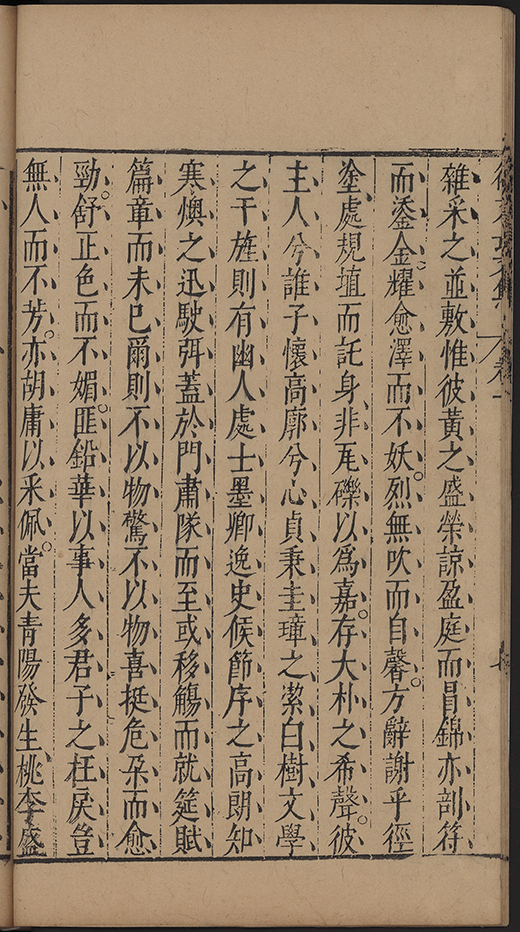 雜采之並敷惟彼黃之盛榮諒盈庭而冒錦亦剖符
而鋈金耀愈澤而不妖。烈無吹而自馨。方辭謝乎徑
塗處規埴而託身非瓦礫以為嘉。存大朴之希聲。彼
主人兮誰子懷高廓兮心貞秉圭璋之潔白樹文學
之干旌則有幽人處士墨卿逸史候節序之高朗知
寒燠之迅駛弭蓋於門肅隊而至或移觴而就筵賦
篇章而未已爾則不以物驚不以物喜挺危朶而愈
勁。舒正色而不媚。匪鉛華以事人多君子之枉戾豈
無人而不芳。亦胡庸以采佩。當夫青陽發生桃李盛